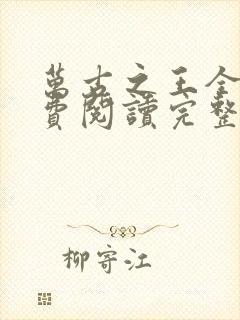 萬古之王全
費閱讀完整
柳寄江